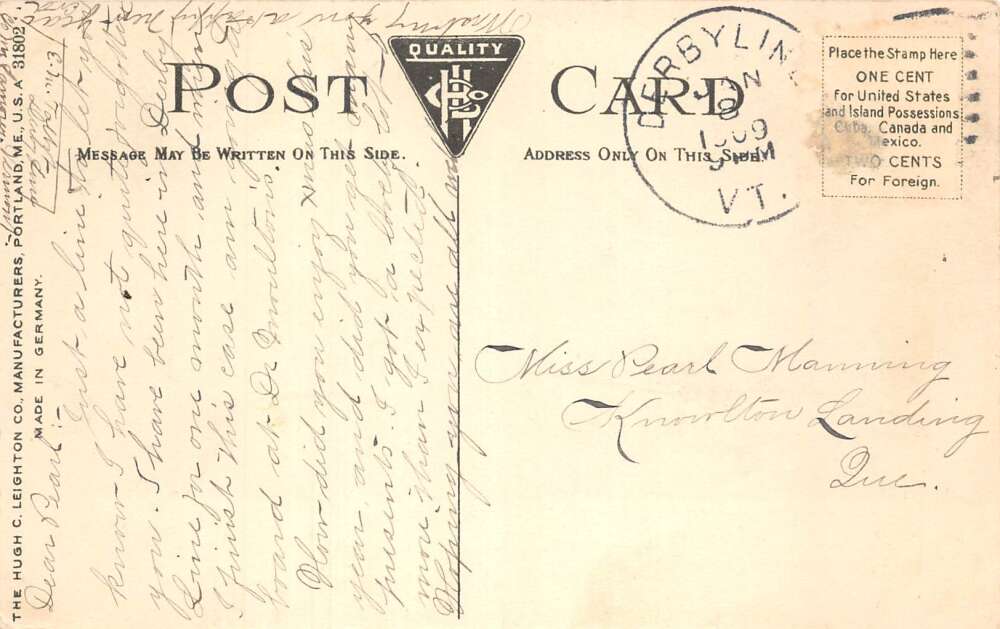 POST CARD
QUALITY
MESSAGE MAY BE WRITTEN ON THIS SIDE.
ADDRESS ONLY ON THIS SIDE.
DERBYLINE
JAN
8
1909
VT.
Place the Stamp Here
ONE CENT
For United States
and Island Possessions
Cuba, Canada and
Mexico.
TWO CENTS
For Foreign.
THE HUGH C. LEIGHTON CO., MANUFACTURERS, PORTLAND, ME., U.S.A 31802
MADE IN GERMANY.
Dear Pearl:-
Just a line to let you
know I have not quite forgotten
you. I have been here in Derby
Line on one month and when
I finish this case am going to
board at Dr Moulton's.
How did you enjoy Xmas
year and did you get many
presents. I got a lot
more than I expected
Hoping you are all well
Wishing you a happy New Year
Miss Pearl Manning
Knowlton Landing
Que.